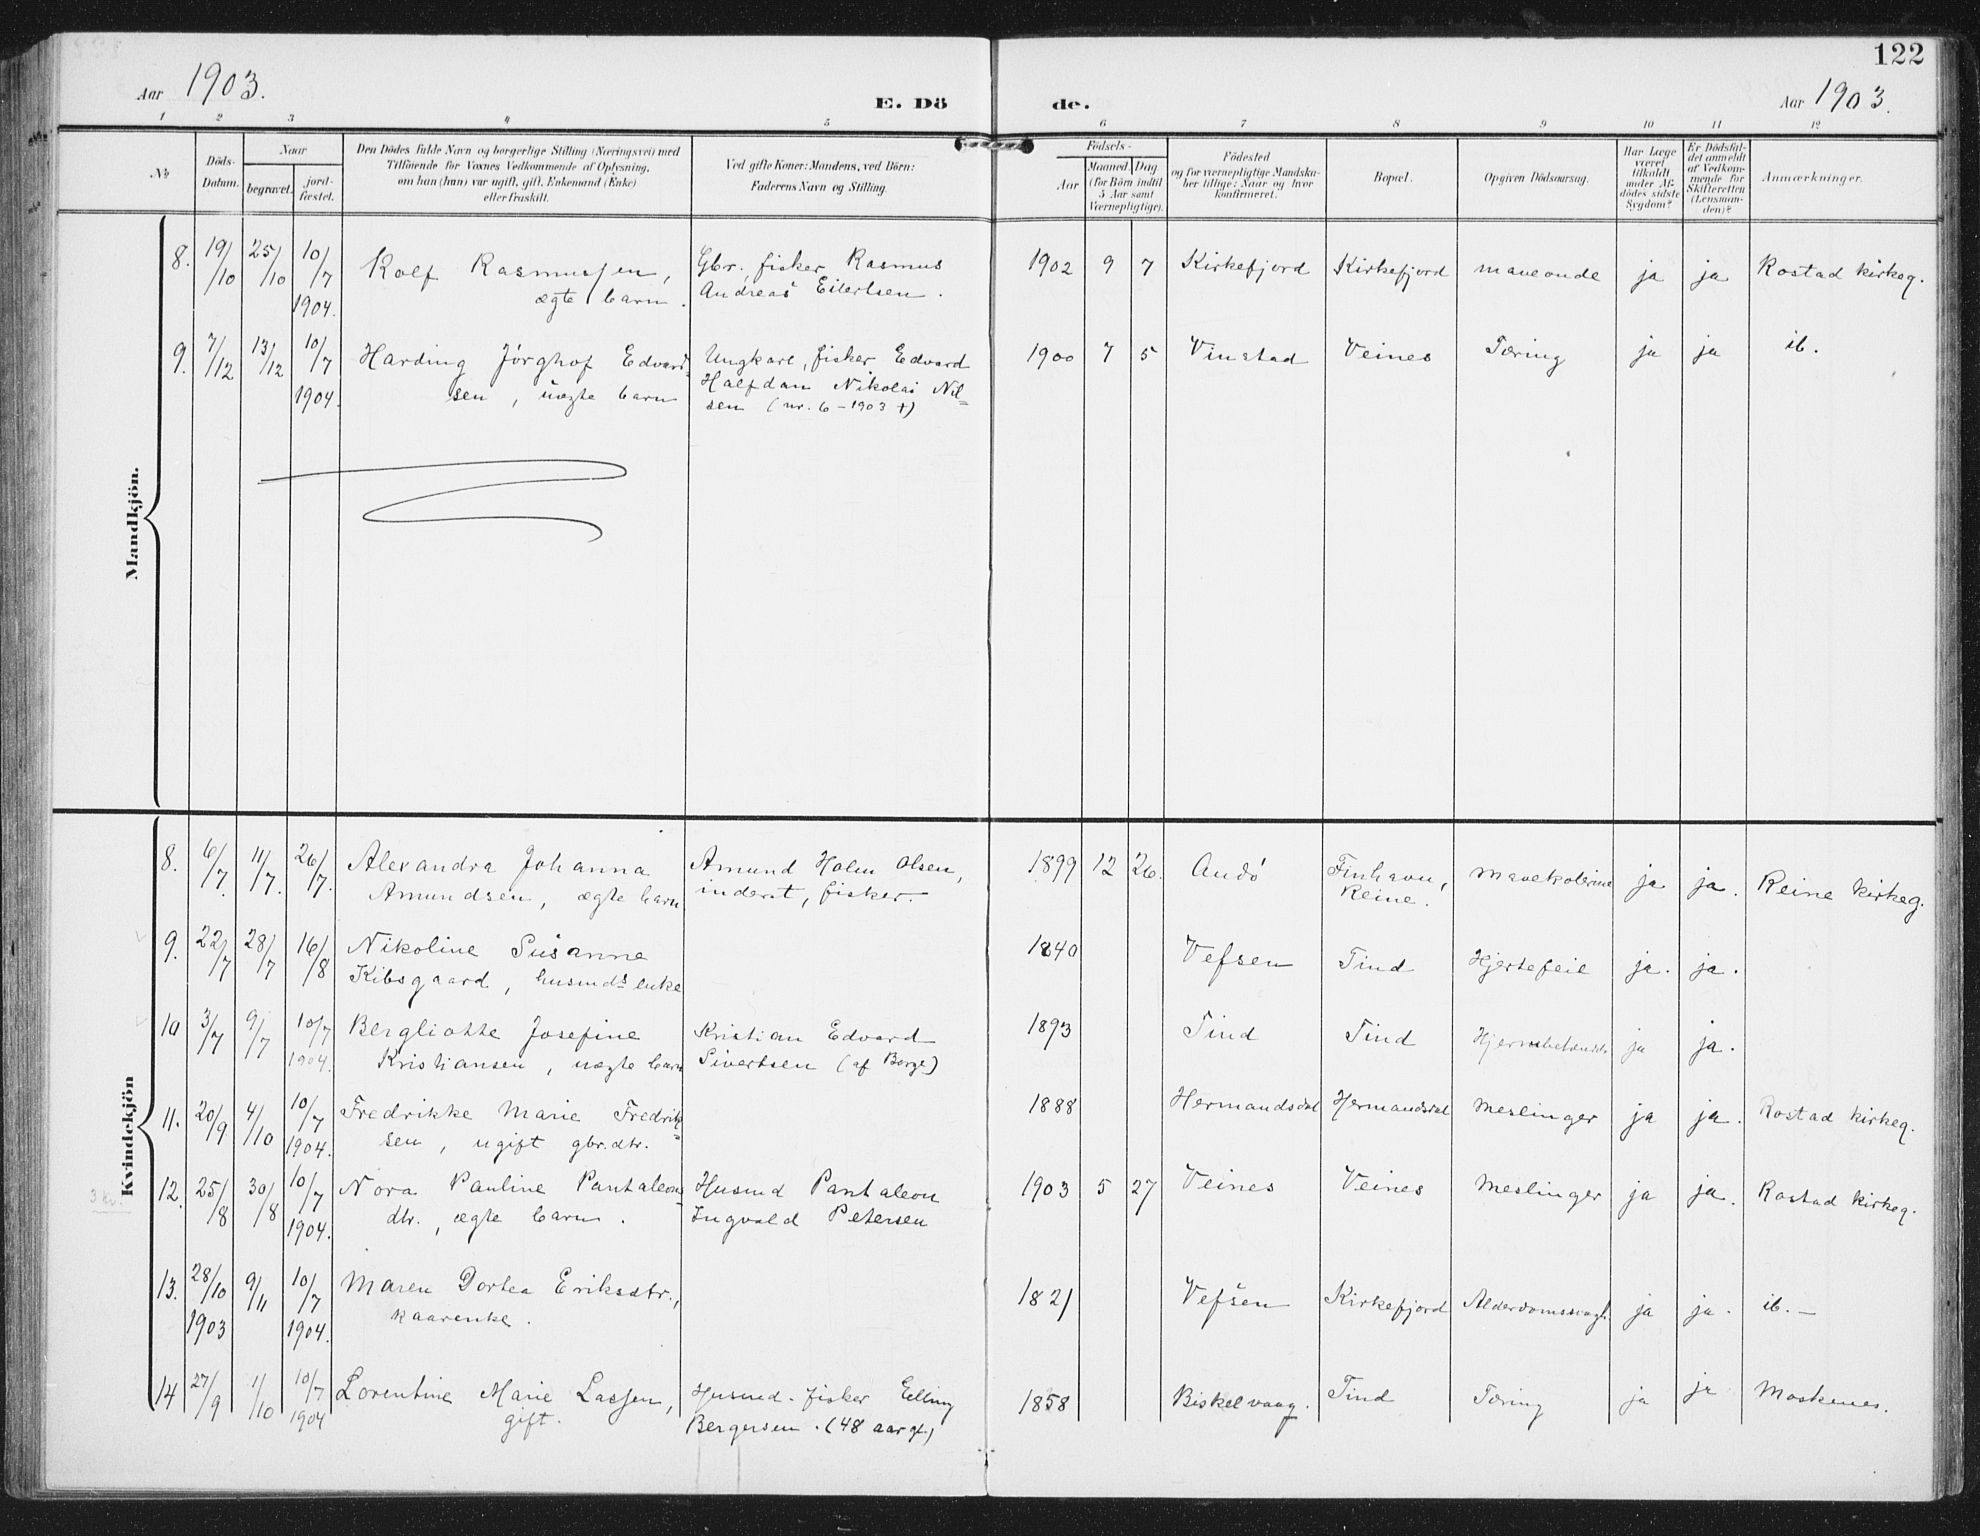 122
Aar 1903.
E. Dö
de.
Aar 1903.
1 2 3 4 5 6 7 8 9 10 11 12
No
Döds-
Datum.
Naar
begravet.
jord-
fæstet.
Den Dødes fulde Navn og borgerlige Stilling (Næringsvei) med
Tilföiende for Voxnes Vedkommende af Oplysning,
om han (hun) var ugift, gift, Enkemand (Enke)
eller fraskilt.
Ved gifte Koner: Mandens, ved Börn:
Faderens Navn og Stilling.
Födsels-
Aar
Maaned Dag
(for Börn indtil
5 Aar samt
Værnepligtige).
Födested
og for værnepligtige Mandska-
ber tillige: Naar og hvor
konfirmeret.
Bopæl.
Opgiven Dödsaarsag.
Har Læge
været
tilkaldt
under Af-
dödes sidste
Sygdom?
Er Dödsfal-
det anmeldt
af Vedkom-
mende for
Skifteretten
(Lensman-
den)?
Anmærkninger.
Mandkjön.
8. 19/10 25/10 10/7 1904. Rolf Rasmussen, Gbr., fisker Rasmus 1902 9 7 Kirkefjord Kirkefjord maveonde ja ja Rostad kirkeg.
ægte barn. Andreas Eilertsen.
9. 7/12 13/12 10/7 1904. Harding Jörghof Edvard= Ungkarl, fisker Edvard 1900 7 5 Vinstad Veines Tæring ja ja ib.
sen, uægte barn Halfdan Nikolai Nil=
sen (nr. 6 - 1903 +)
Kvindekjön
8. 6/7 11/7. 26/7. Alexandra Johanna Amund Holm Olsen, 1899 12 26. Andö Finhavn, mavekolerine ja ja. Reine kirkeg.
Amundsen, ægte barn inderst, fisker. Reine.
9. 22/7 28/7 16/8 Nikoline Susanne 1840 Vefsen Tind Hjertefeil ja. ja.
Kibsgaard, husmds enke
10 3/7 9/7 10/7 1904. Bergliotte Josefine Kristian Edvard 1893 Tind Tind ja ja.
Kristiansen, uægte barn Sivertsen (af Borge)
11. 20/9 4/10 10/7 1904. Fredrikke Marie Fredrik= 1888 Hermandsdal Hermandsdal Meslinger ja ja. Rostad kirkeg.
sen, ugift gbr.dtr.
12. 25/8 30/8 10/7 1904. Nora Pauline Pantaleons= Husmd Pantaleon 1903 5 27 Veines Veines Meslinger ja ja. Rostad kirkeg.
dtr., ægte barn. Ingvald Petersen
13. 28/10 1903 9/11 10/7 1904. Maren Dortea Eriksdtr., 1821 Vefsen Kirkefjord Alderdomssvagh. ja ja. ib. -
kaarenke.
14 27/9 1/10 10/7 1904 Lorentine Marie Lassen, Husmd. fisker Elling 1858 Biskelvaag. Tind Tæring ja ja Moskenes.
gift. Bergersen. (48 aar gl.)